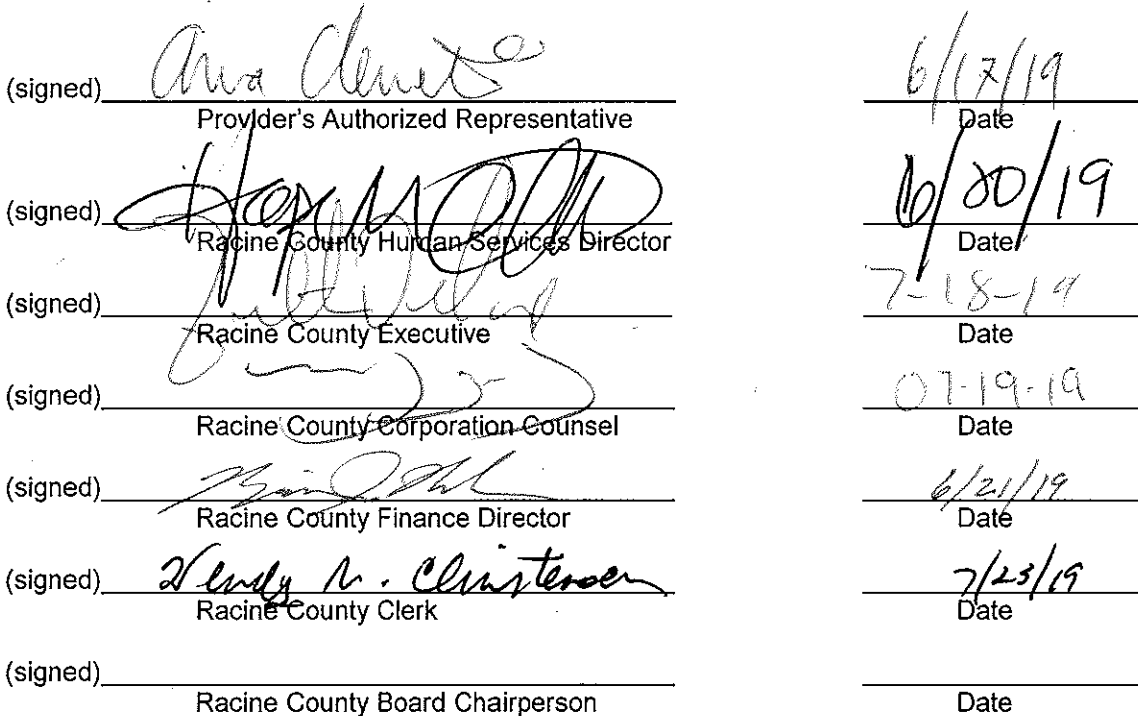 (signed) 6/17/19
Provider's Authorized Representative Date
(signed) 6/20/19
Racine County Human Services Director Date
(signed) 7-18-19
Racine County Executive Date
(signed) 07-19-19
Racine County Corporation Counsel Date
(signed) 6/21/19
Racine County Finance Director Date
(signed) Wendy M. Christensen 7/23/19
Racine County Clerk Date
(signed)
Racine County Board Chairperson Date